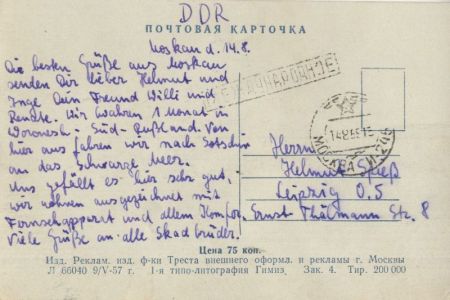 DDR
ПОЧТОВАЯ КАРТОЧКА
Moskau d. 14.8.
Die besten Grüße aus Moskau
senden Dir lieber Helmut und
Inge Dein Freund Willi und
Renate. Wir wohnen 1 Monat in
Woronesh - Süd-Rußland. Von
hier aus fahren wir nach Sotschi
an das Schwarze Meer.
Uns gefällt es hier sehr gut,
wir wohnen ausgezeichnet mit
Fernsehapparat und allem Komfor.
Viele Grüße an alle Skatbrüder!
МЕЖДУНАРОДНОЕ
МОСКВА
Herrn
Helmut Spieß
Leipzig O.5
Ernst Thälmann Str. 8
Цена 75 коп.
Изд. Реклам. изд. ф-ки Треста внешнего оформл. и рекламы г. Москвы
Л 66040 9/V-57 г. 1-я типо-литография Гимиз. Зак. 4. Тир. 200 000